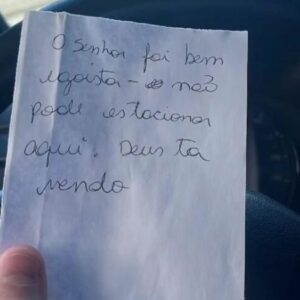 O senhor foi bem
egoista - não
pode estacionar
aqui. Deus ta
vendo